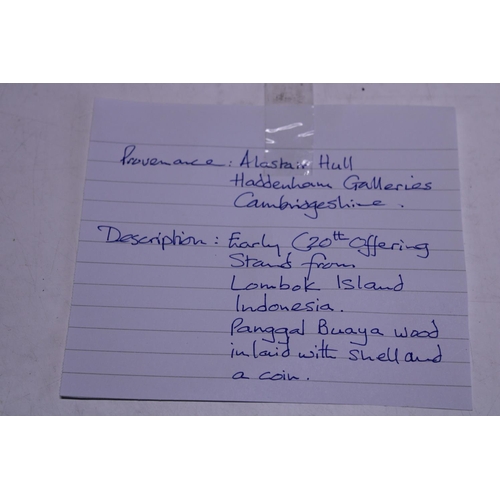 Provenance: Alastair Hull
Haddenham Galleries
Cambridgeshire.
Description: Early C20th Offering
Stand from
Lombok Island
Indonesia.
Panggal Buaya wood
inlaid with shell and
a coin.